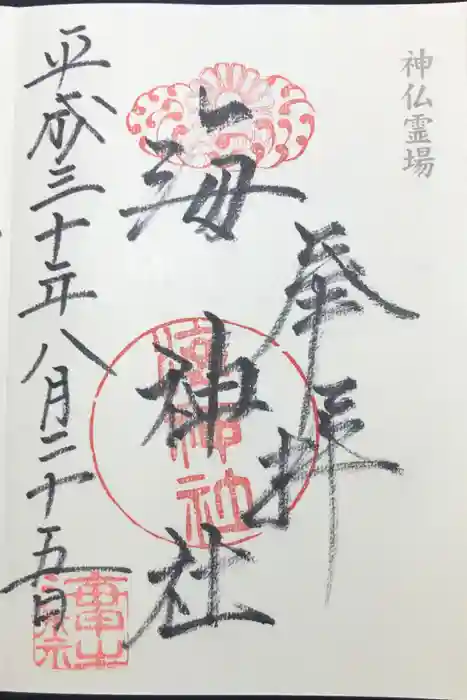 神仏霊場
奉拝
海神社
平成三十年八月二十五日
海神社